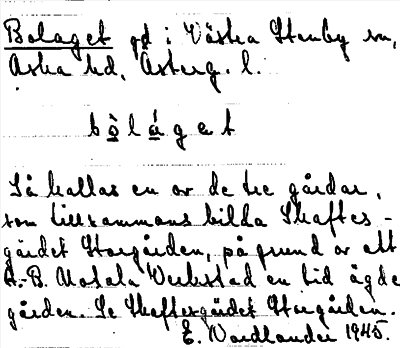 Bolaget gd i Västra Stenby sn,
Aska hd, Österg. l.
bò̲lá̲get
Så kallas en av de tre gårdar,
som tillsammans bilda Skaftes-
gärdet Storgården, på grund av att
A.-B. Motala Verkstad en tid ägde
gården. Se Skaftesgärdet Storgården.
E. Nordlander 1945.